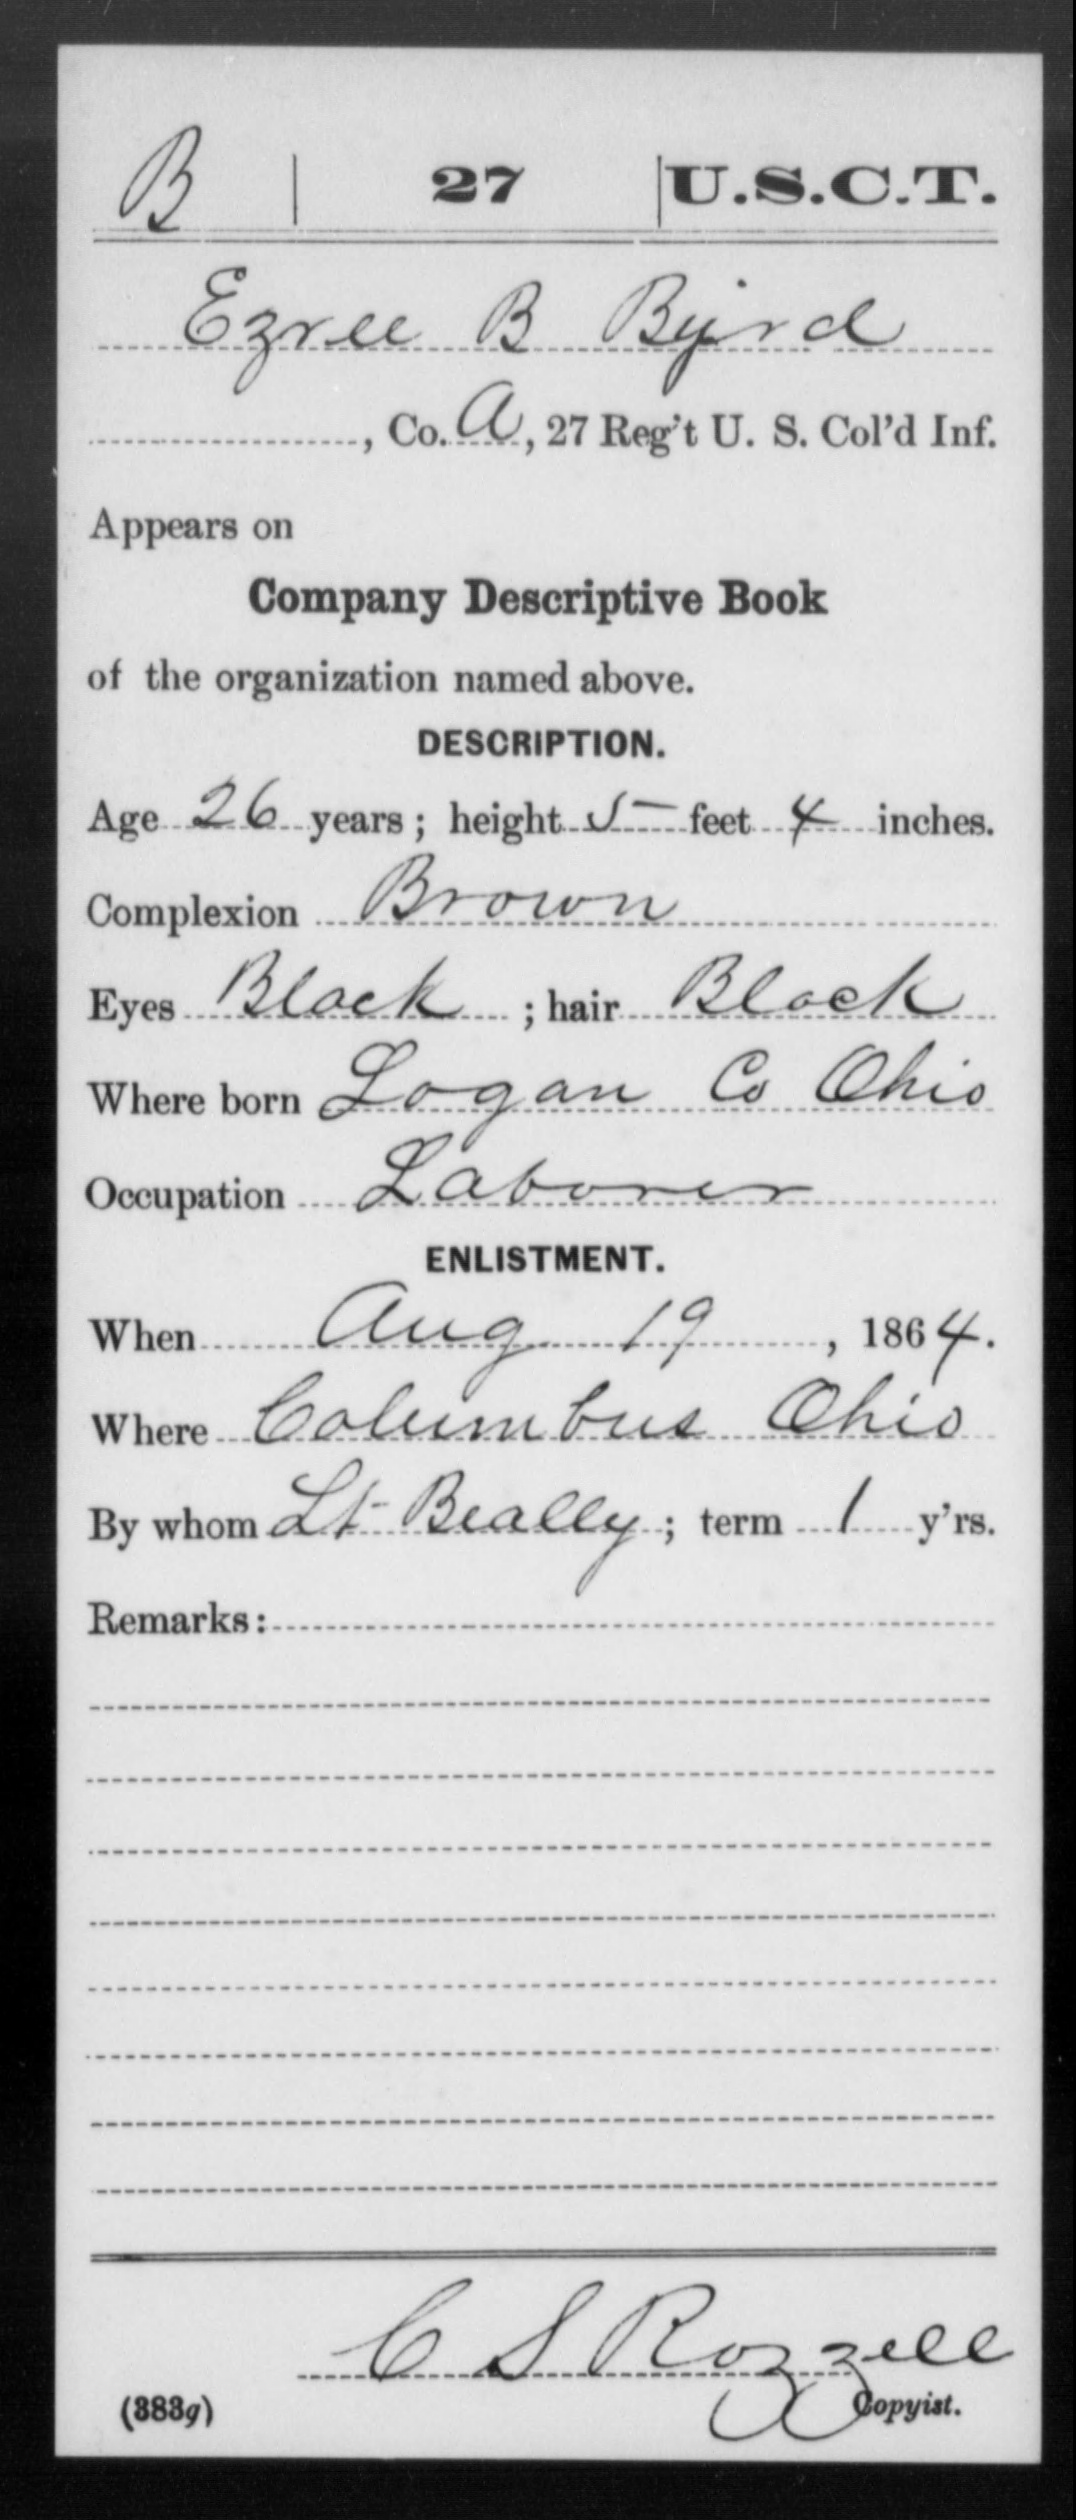 B 27 U.S.C.T.
Ezree B Byrd
, Co. A, 27 Reg't U. S. Col'd Inf.
Appears on
Company Descriptive Book
of the organization named above.
DESCRIPTION.
Age 26 years; height 5 feet 4 inches.
Complexion Brown
Eyes Black ; hair Black
Where born Logan Co Ohio
Occupation Laborer
ENLISTMENT.
When Aug 19, 1864.
Where Columbus Ohio
By whom Lt Beally; term 1 y'rs.
Remarks:
C S Rozzell
(383g) Copyist.